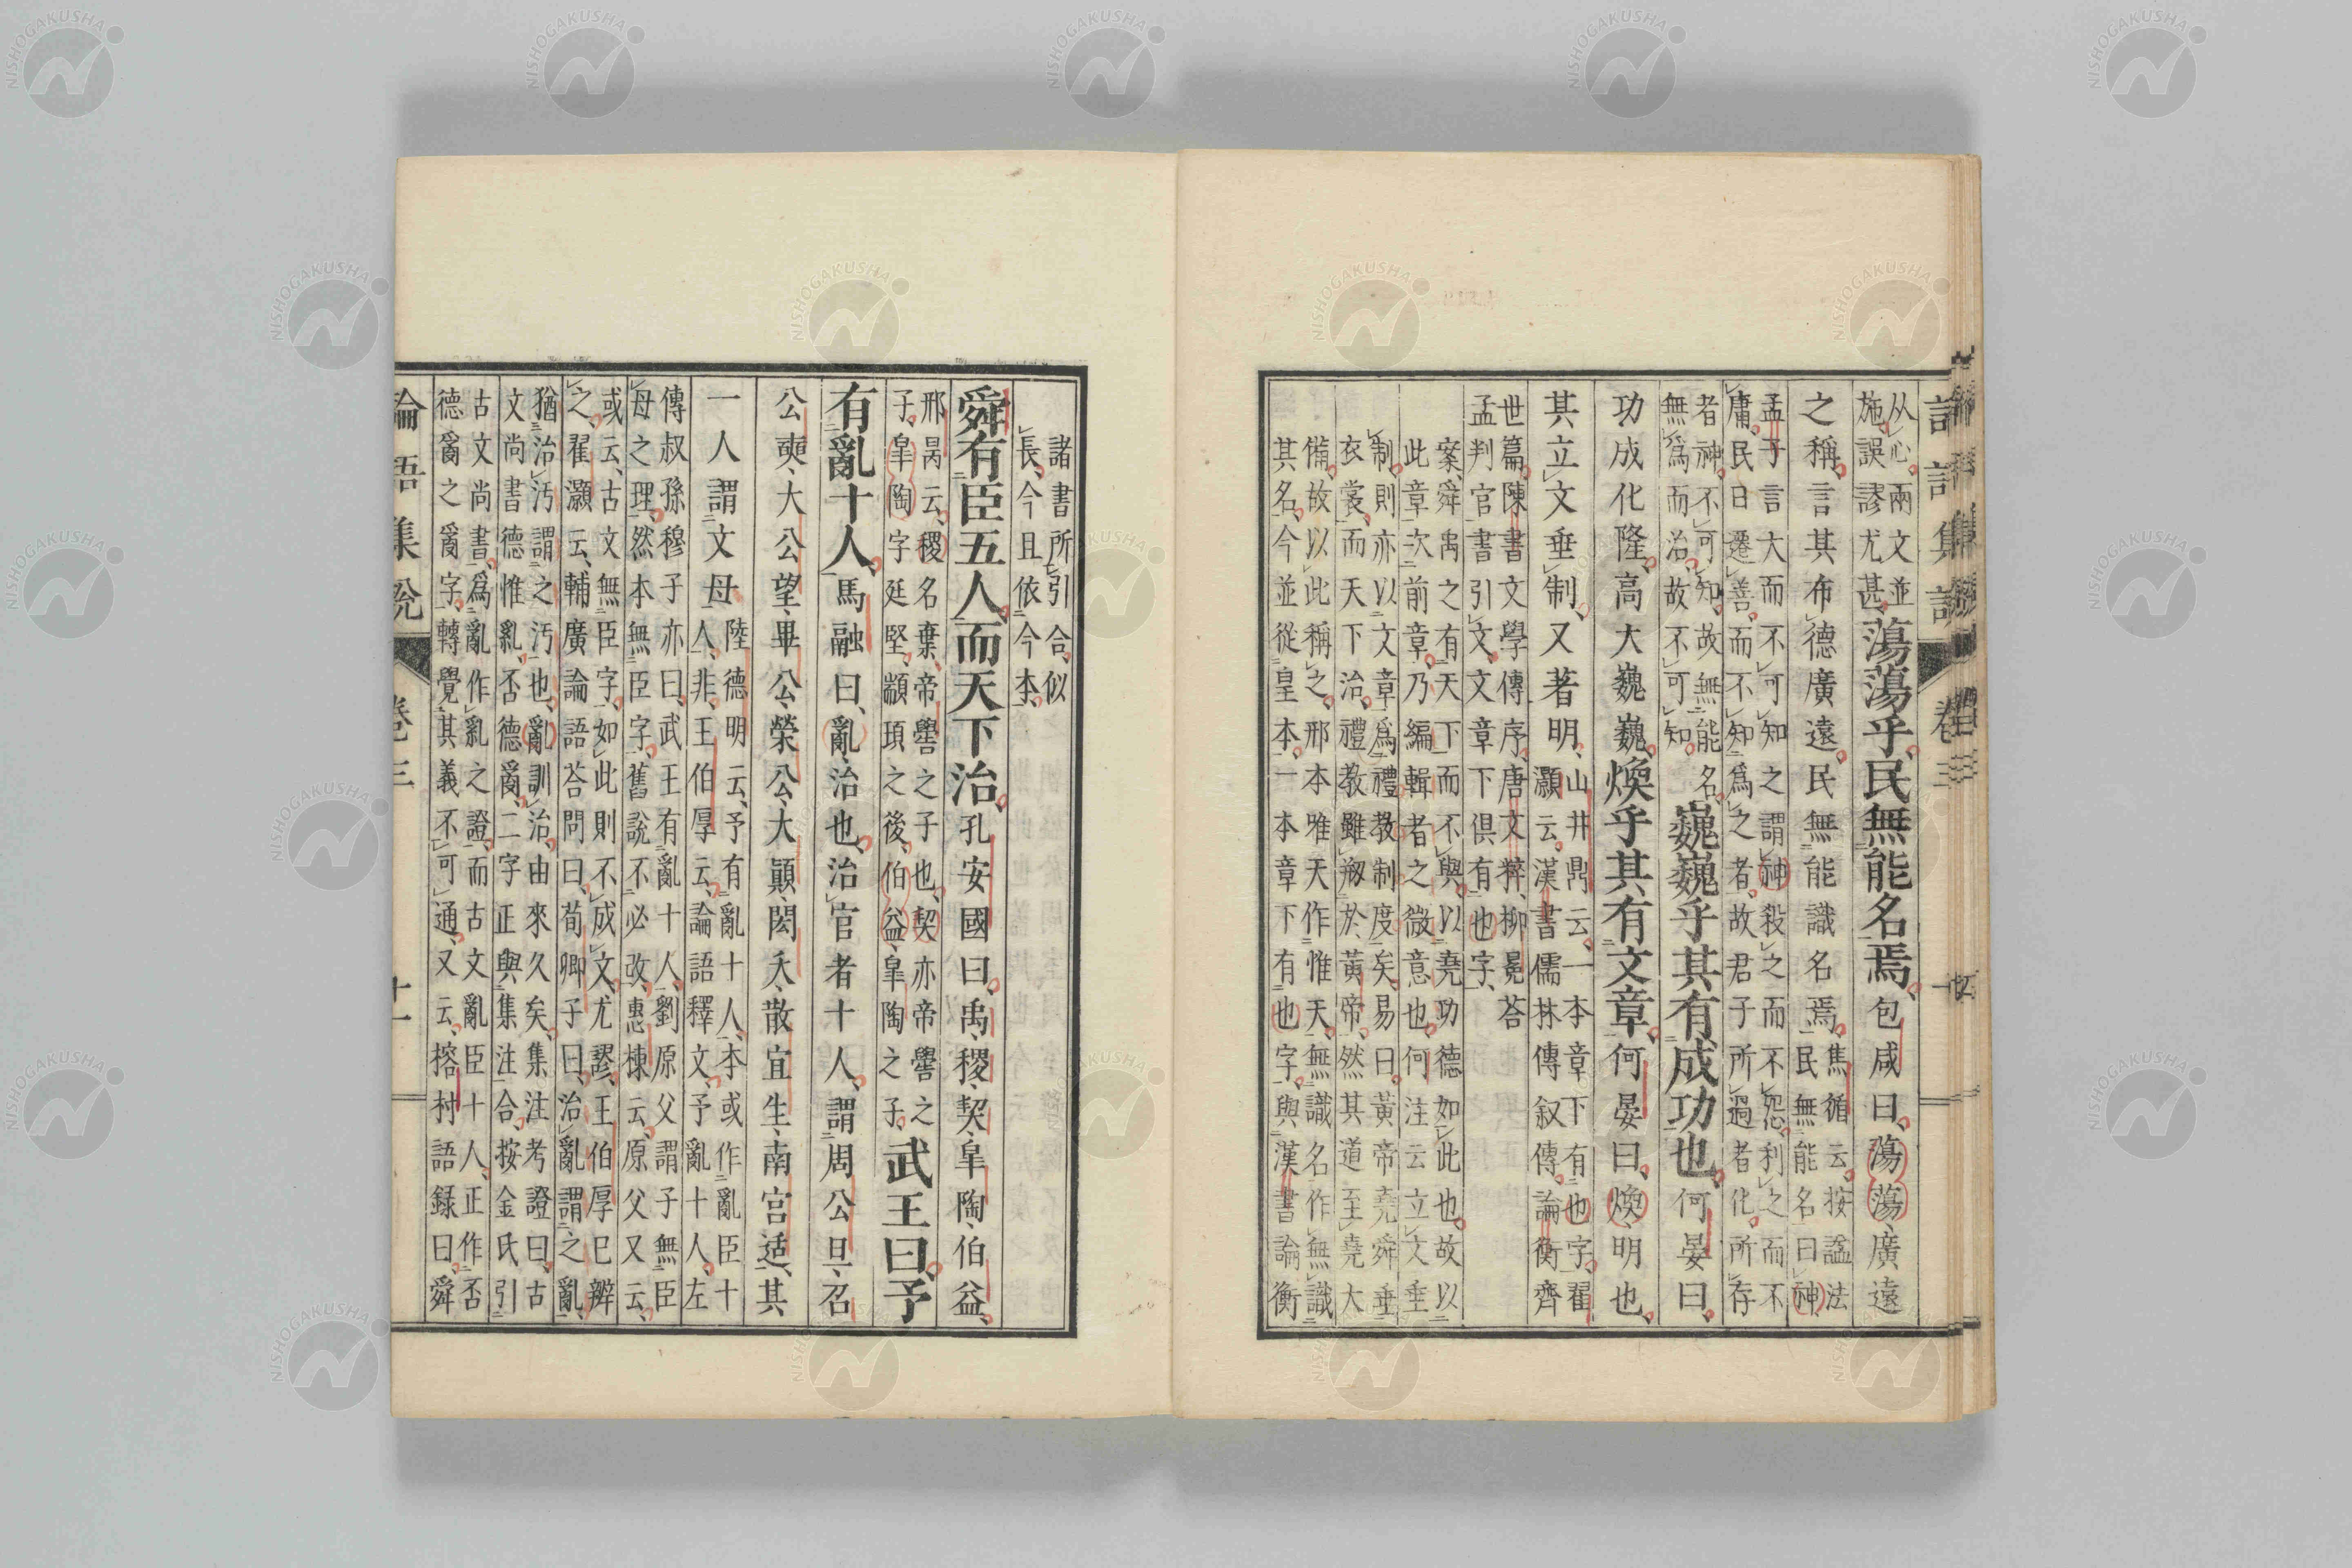 从心兩文並
施誤謬尤甚蕩蕩乎民無能名焉包咸曰蕩蕩廣遠
之稱言其布德廣遠民無能識名焉焦循云按謚法
民無能名曰神
孟子言大而不可知之謂神殺之而不怨利之而不
庸民日遷善而不知爲之者故君子所過者化所存
者神不可知故無能名
無爲而治故不可知巍巍乎其有成功也何晏曰
功成化隆高大巍巍煥乎其有文章何晏曰煥明也
其立文垂制又著明山井鼎云一本章下有也字翟
灝云漢書儒林傳叙傳論衡齊
世篇陳書文學傳序唐文粹柳冕荅
孟判官書引文文章下俱有也字
案舜禹之有天下而不與以堯功德如此也故以
此章次前章乃編輯者之微意也何注云立文垂
制則亦以文章爲禮教制度矣易曰黃帝堯舜垂
衣裳而天下治禮教雖剏於黃帝然其道至堯大
備故以此稱之邢本唯天作惟天無識名作無識
其名今並從皇本一本章下有也字與漢書論衡
諸書所引合似
長今且依今本
舜有臣五人而天下治孔安國曰禹稷契皐陶伯益
邢昺云稷名棄帝嚳之子也契亦帝嚳之
子皐陶字廷堅顓頊之後伯益皐陶之子武王曰予
有亂十人馬融曰亂治也治官者十人謂周公旦召
公奭大公望畢公榮公大顚閎夭散宜生南宮适其
一人謂文母陸德明云予有亂十人本或作亂臣十
人非王伯厚云論語釋文予亂十人左
傳叔孫穆子亦曰武王有亂十人劉原父謂子無臣
母之理然本無臣字舊說不必改惠棟云原父又云
或云古文無臣字如此則不成文尤謬王伯厚已辨
之翟灝云輔廣論語荅問曰荀卿子曰治亂謂之亂
猶治汚謂之汚也亂訓治由來久矣集注考證曰古
文尚書德惟乿否德𤔔二字正與集注合按金氏引
古文尚書爲亂作乿之證而古文亂臣十人正作否
德𤔔之𤔔字轉覺其義不可通又云榕村語録曰舜
論語集說 卷三 十一